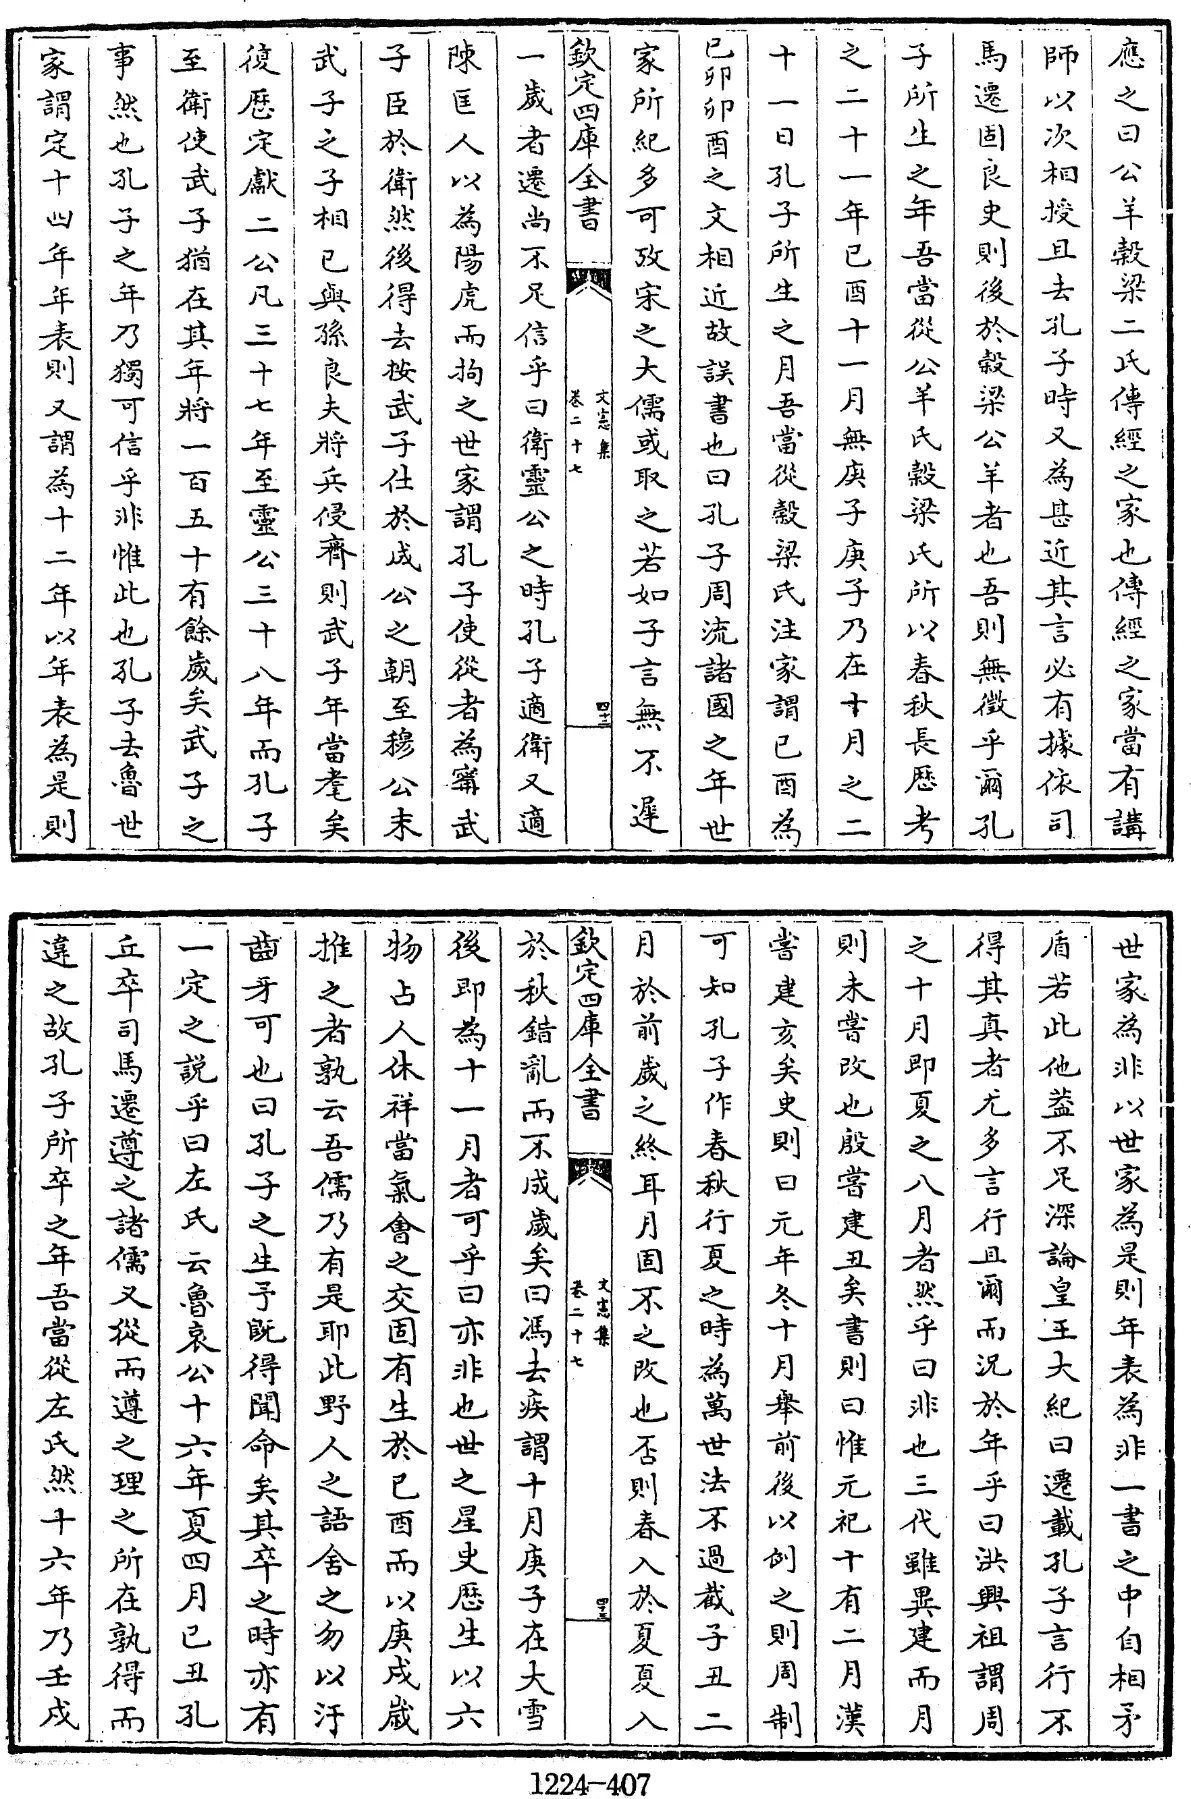 應之曰公羊穀梁二氏傳經之家也傳經之家當有講
師以次相授且去孔子時又為甚近其言必有據依司
馬遷固良史則後於穀梁公羊者也吾則無徵乎爾孔
子所生之年吾當從公羊氏穀梁氏所以春秋長歴考
之二十一年已酉十一月無庚子庚子乃在十月之二
十一日孔子所生之月吾當從穀梁氏注家謂已酉為
已卯卯酉之文相近故誤書也曰孔子周流諸國之年世
家所紀多可攷宋之大儒或取之若如子言無不遲
欽定四庫全書
文憲集
卷二十七
四十二
一歲者遷尚不足信乎曰衛靈公之時孔子適衛又適
陳匡人以為陽虎而拘之世家謂孔子使從者為甯武
子臣於衛然後得去按武子仕於成公之朝至穆公末
武子之子相已與孫良夫將兵侵齊則武子年當耄矣
復歴定獻二公凡三十七年至靈公三十八年而孔子
至衛使武子猶在其年將一百五十有餘歲矣武子之
事然也孔子之年乃獨可信乎非惟此也孔子去魯世
家謂定十四年年表則又謂為十二年以年表為是則
世家為非以世家為是則年表為非一書之中自相矛
盾若此他葢不足深論皇王大紀曰遷載孔子言行不
得其真者尤多言行且爾而況於年乎曰洪興祖謂周
之十月即夏之八月者然乎曰非也三代雖異建而月
則未嘗改也殷嘗建丑矣書則曰惟元祀十有二月漢
嘗建亥矣史則曰元年冬十月舉前後以例之則周制
可知孔子作春秋行夏之時為萬世法不過截子丑二
月於前歲之終耳月固不之改也否則春入於夏夏入
欽定四庫全書
文憲集
卷二十七
四十三
於秋錯亂而不成歲矣曰馮去疾謂十月庚子在大雪
後即為十一月者可乎曰亦非也世之星史歴生以六
物占人休祥當氣會之交固有生於已酉而以庚戌歲
推之者孰云吾儒乃有是耶此野人之語舍之勿以汙
齒牙可也曰孔子之生予既得聞命矣其卒之時亦有
一定之説乎曰左氏云魯哀公十六年夏四月已丑孔
丘卒司馬遷遵之諸儒又從而遵之理之所在孰得而
違之故孔子所卒之年吾當從左氏然十六年乃壬戌
1224-407